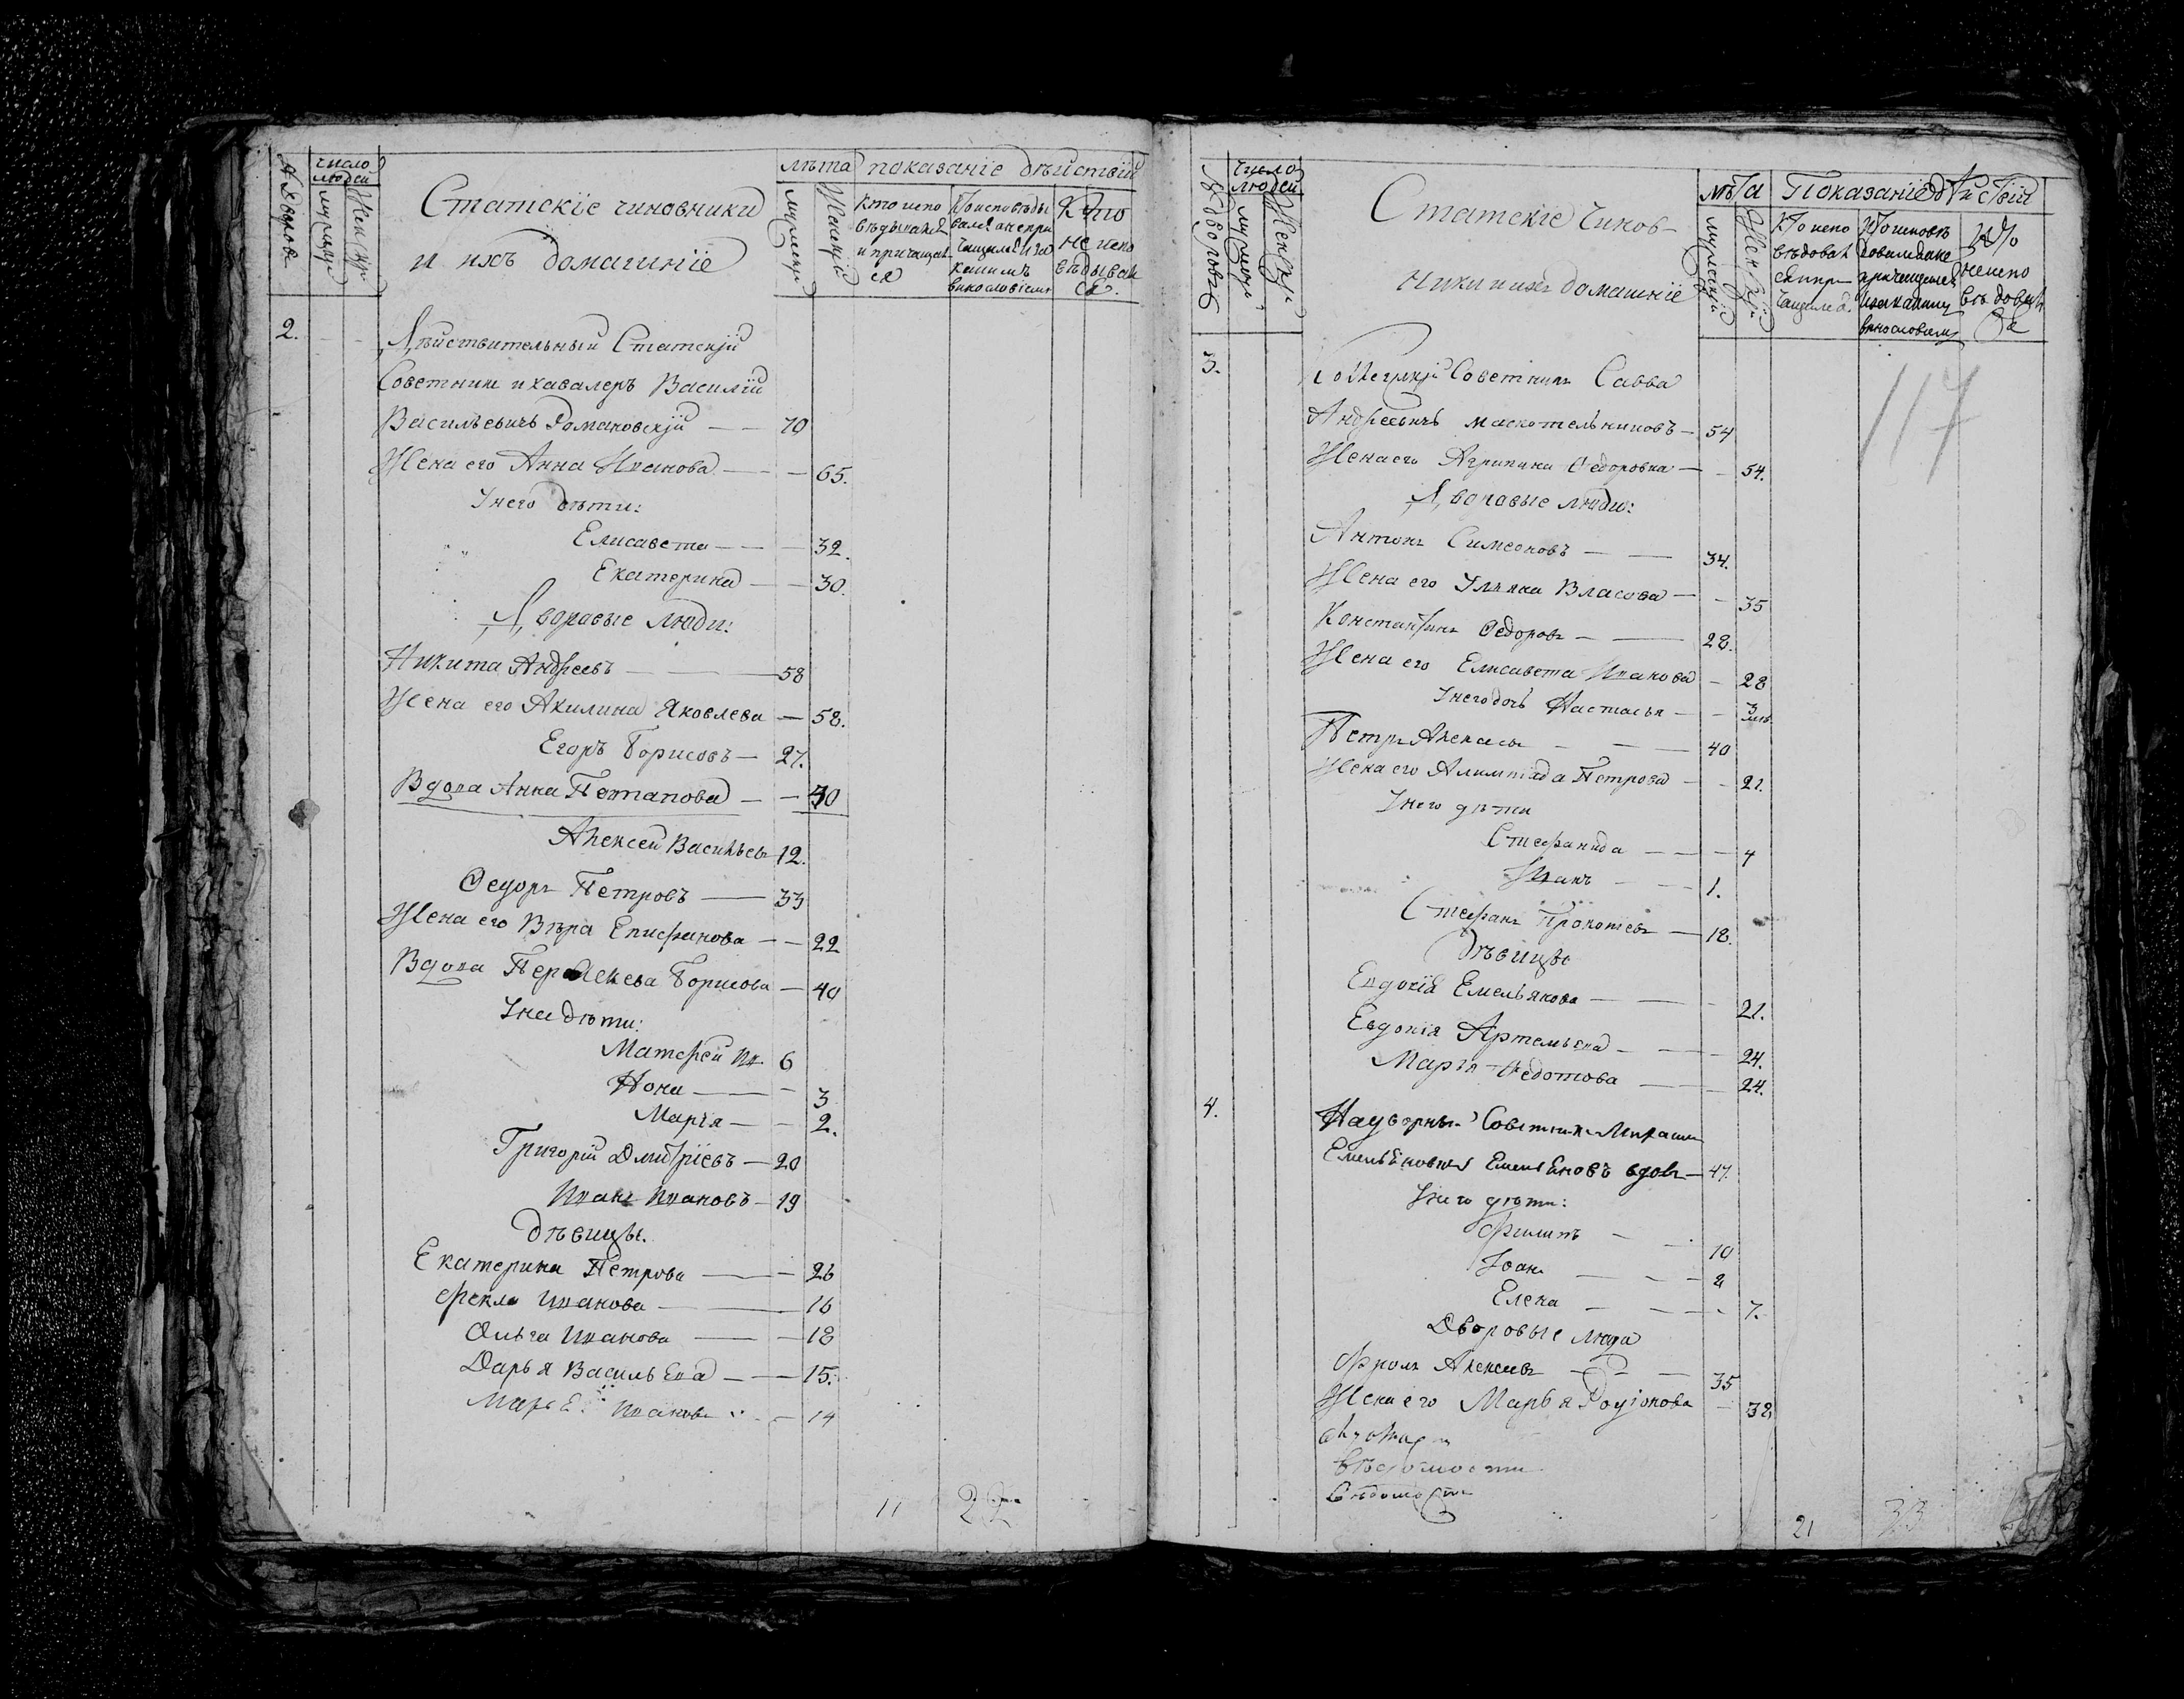 № дворовъ
число людей
мужеска
женска
Статскіе чиновники
и ихъ домашніе
лѣта
мужески
женскій
показаніе дѣйствій
кто испо
вѣдывался
и причащал
ся
Кто исповѣды
вался а не при
чащился и за
какимъ
винословіемъ
Кто
не испо
вѣдывал
ся.
2.
Дѣйствительный Статскій
Советникъ и кавалеръ Василій
Васильевичъ Романовскій — — 70
Жена его Анна Иванова — — 65.
У него дѣти:
Елисавета — — — 32.
Екатерина — — 30.
Дворовые люди:
Никита Андреевъ — — — 58
Жена его Акилина Яковлева — 58.
Егоръ Борисовъ — 27.
Вдова Анна Потапова — — 30
Алексей Васильевъ 12.
Ѳедоръ Петровъ — 33
Жена его Вѣра Епифанова — — 22
Вдова Борисова — 40
У нея дѣти:
Матфей Ив. 6
3
Марія — — 2.
Григорій Дмитріевъ — 20
Иванъ Ивановъ — 19
Дѣвицы.
Екатерина Петрова — — 26
Фекла Иванова — — 16
Ольга Иванова — — 18
Дарья Васильева — — 15.
Марья Иванова — 14
11 22
№ дворовъ
число
людей
мужеска
женска
Статскіе Чинов-
ники и ихъ домашніе
лѣта
мужескій
женскій
Показаніе дѣйствій
Кто испо
вѣдовал
ся и при
чащился.
Кто исповѣ
довался а не
причащился
и за какимъ
винословіемъ
Кто
не испо
вѣдовал
ся
117
3.
Коллежскій Советникъ Савва
Андреевичъ Москотельниковъ — 54
Жена его Агрипина Ѳедоровна — — 54.
Дворовые люди:
Антонъ Симеоновъ — — 34.
Жена его Ульяна Власова — — 35
Константинъ Ѳедоровъ — — 28.
Жена его Елисавета Иванова — 28
У него дочь Настасья — — 3
Петръ Алексеевъ — — — 40
Жена его Алимпіада Петрова — — 21.
У него дѣти
Стефанида — — — 4
Иванъ — — 1.
Стефанъ Прокопіевъ — 18.
Дѣвицы
Евдокія Емельянова — — — 21.
Евдокія Артемьева — — — 24.
Марія Ѳедотова — — 24.
4.
Надворный Советникъ
Емельяновичъ Емельяновъ вдовъ — 47.
У него дѣти:
Филипъ — — 10
Іоанъ — — — 2
Елена — — — 7.
Дворовые люди
Фролъ Алексеевъ — — — 35
Жена его Марья Родіонова — 32
вѣдомости
Вѣдомости
21 33